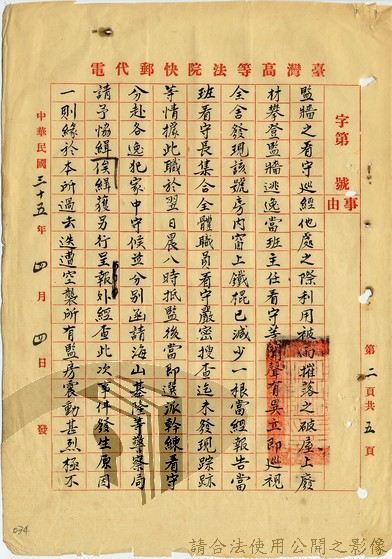 臺灣高等法院快郵代電
字第 號
事由
第二頁共五頁
監牆之看守巡經他處之際利用被雨摧落之破屋上廢
材攀登監牆逃逸當班主任看守等聞聲有異立即巡視
全舍發現該號房內窗上鐵棍已減少一根當經報告當
班看守長集合全體職員看守嚴密搜查迄未發現踪跡
等情據此職於翌日晨八時抵監後當即選派幹練看守
分赴各逸犯家中守候並分別函請海山基隆等警察局
請予協緝俟緝獲另行呈報外經查此次事件發生原因
一則緣於本所過去迭遭空襲所有監房震動甚烈極不
中華民國三十五年四月四日發
074
請合法使用公開之影像